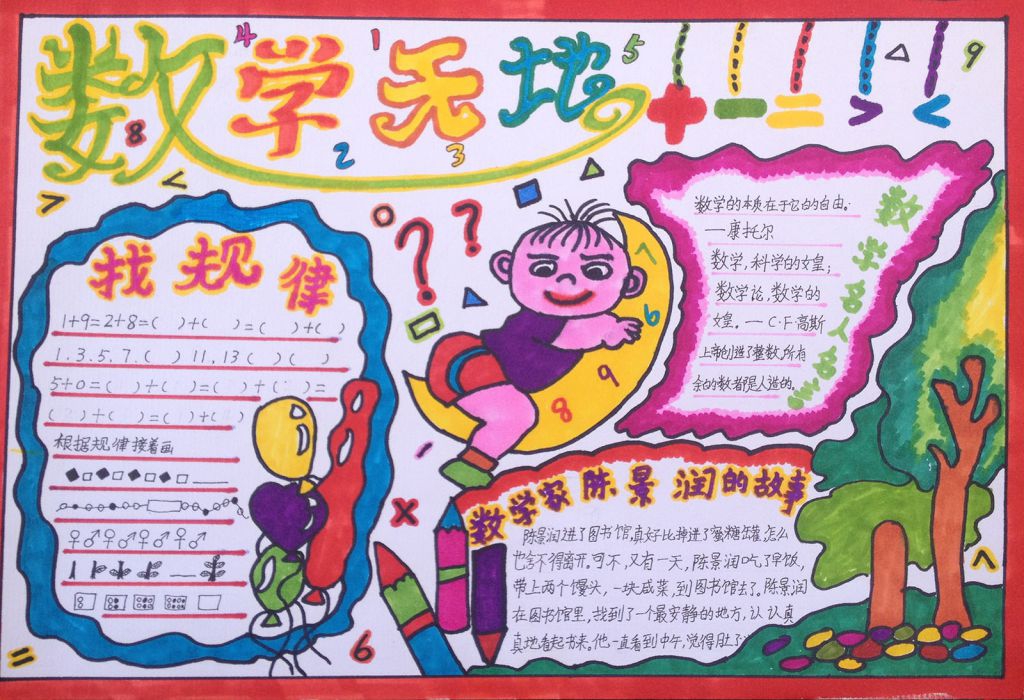 数学天地
4
1
5
9
8
2
3
+
−
=
>
<
>
<
找规律
1+9=2+8=( )+( )=( )+( )
1.3.5.7.( ) 11,13( )( )
5+0=( )+( )=( )+( )=
( )+( )=( )+( )
根据规律接着画
♀♂♀♂♀♂♀♂
? ?
6
9
8
数学名人名言
数学的本质在于它的自由。
—康托尔
数学,科学的女皇;
数学论,数学的
女皇。—C·F·高斯
上帝创造了整数,所有
余的数都是人造的。
数学家陈景润的故事
陈景润进了图书馆,真好比掉进了蜜糖罐,怎么
也舍不得离开。可不,又有一天,陈景润吃了早饭,
带上两个馒头,一块咸菜,到图书馆去了。陈景润
在图书馆里,找到了一个最安静的地方,认认真
真地看起书来。他一直看到中午,觉得肚了
x
=
6